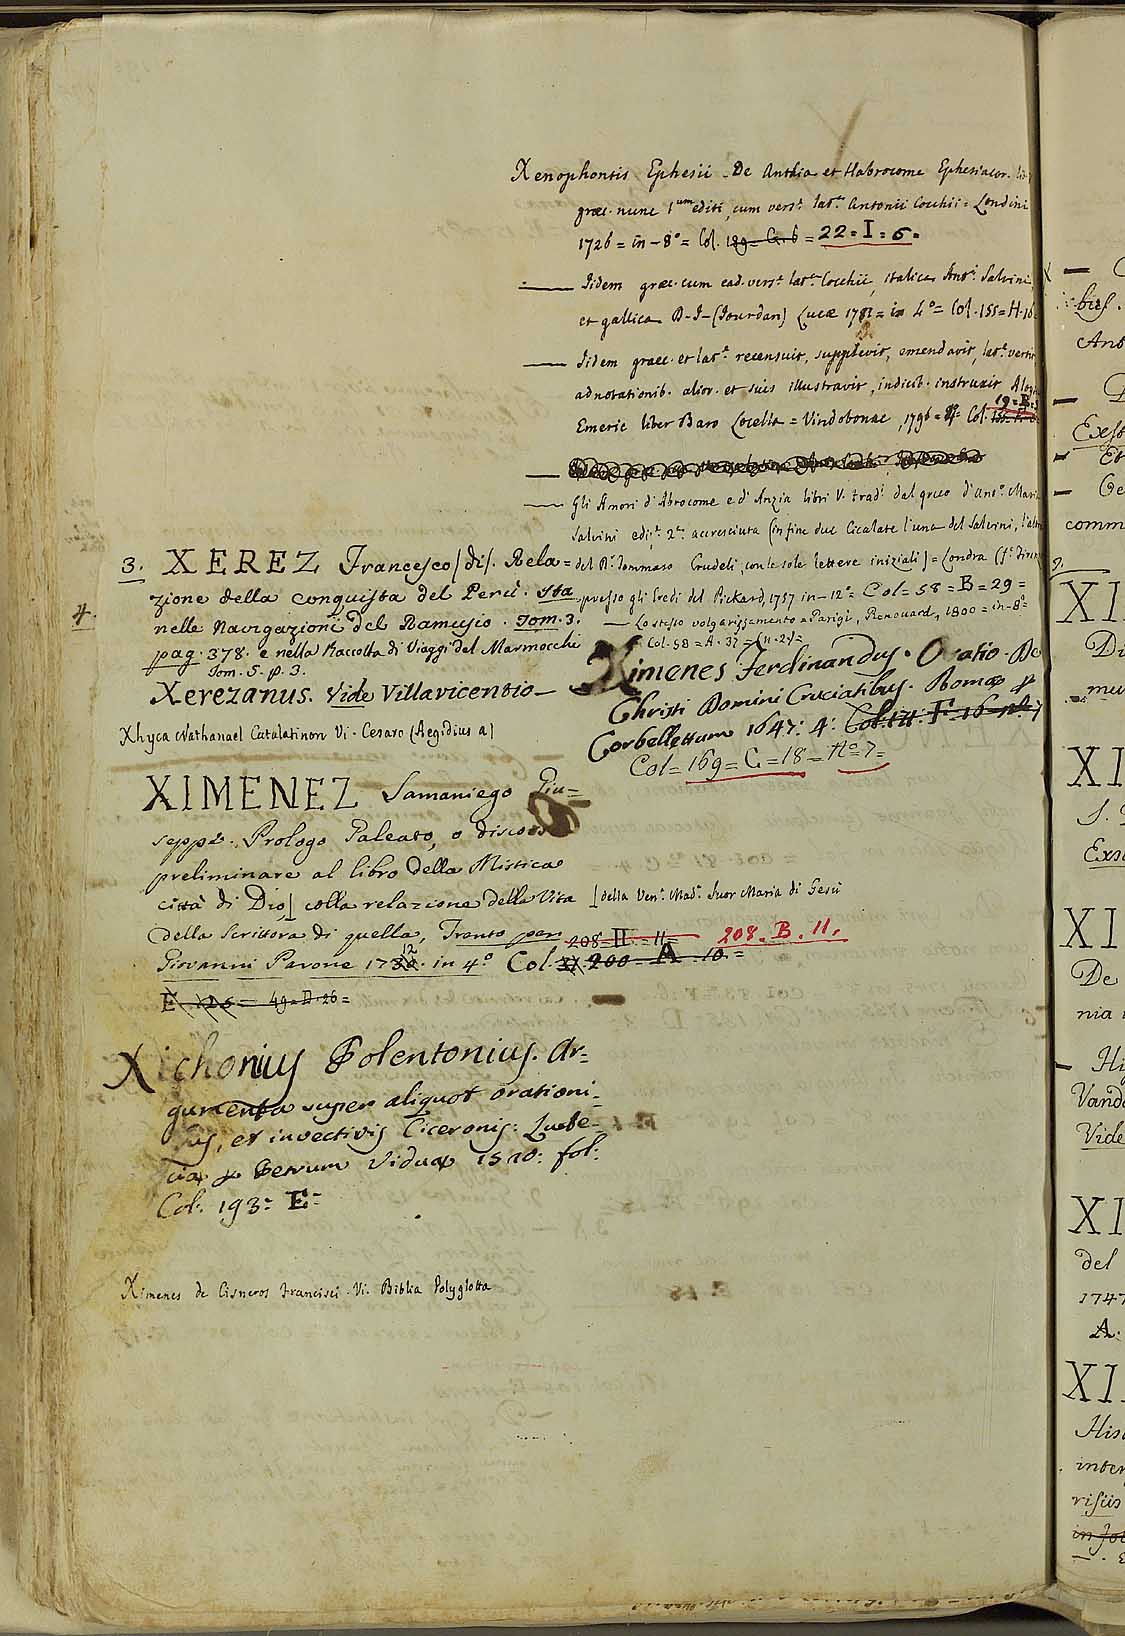 Xenophontis Ephesii De Anthia et Habrocome Ephesiacor. lib.
græc. nunc 1um editi, cum vers.e lat.a Antonii Cocchii = Londini
1726 = in-8° = Col. 189 = G. 6 = 22 = I = 6 =
Iidem græc. cum ead. vers.e lat.a Cocchii, italica Ant.i Salvini
et gallica D-J-(Jourdan) Lucæ 1781 = in 4° = Col. 155 = H. 16
Iidem graec. et lat.e recensuit, supplevit, emendavit, lat.e vertit
adnotationib. alior. et suis illustravit, indicib. instruxit Aloys
19 = B.
Emeric liber Baro Locella = Vindobonae, 1796 = 8° = Col.
Gli Amori d'Abrocome e d'Anzia libri V. trad.i dal greco d'Ant.o Maria
Salvini ediz.e 2.a accresciuta (in fine due Cicalate l'una del Salvini, l'altra
del D.r Tommaso Crudeli, con le sole lettere iniziali) = Londra
presso gli Eredi del Pickard, 1757 in-12° = Col = 58 = B = 29 =
Lo stesso volgarizzamento = Parigi, Renouard, 1800 = in-8°
Col. 58 = A. 37 = (n. 2.) =
3. XEREZ Francesco (di). Rela=
zione della conquista del Perù. Sta
4.
nelle Navigazioni del Ramusio. Tom. 3.
pag. 378. e nella Raccolta di Viaggi del Marmocchi
Tom. 5. p. 3.
Xerezanus. Vide Villavicentio
Xhyca Nathanael Catalatinon Vi. Cesaro (Aegidius a)
Ximenes Ferdinandus. Oratio De
Christi Domini Cruciatibus. Romæ &
Corbellettum 1647: 4: Col: 171: F. 16 n° 7
Col = 169 = C = 18 = N° 7 =
XIMENEZ Samaniego Giu=
seppe. Prologo Galeato, o discorso
preliminare al libro della Mistica
città di Dio | colla relazione della Vita | della Ven.e Mad.e Suor Maria di Gesù
della Scrittora di quella, Trento per 208 H = 11 = 208. B. 11.
Giovanni Parone 1712. in 4.° Col. XX 200 = A. 10. =
E 125 = 49 = D. 26 =
Xichonius Polentonius. Ar=
gumenta super aliquot orationi=
bus, et invectivis Ciceronis: Lute=
ciæ & Petrum Viduæ 1520: fol:
Col: 193: E =
Ximenes de Cisneros Francisci. Vi. Biblia Polyglotta